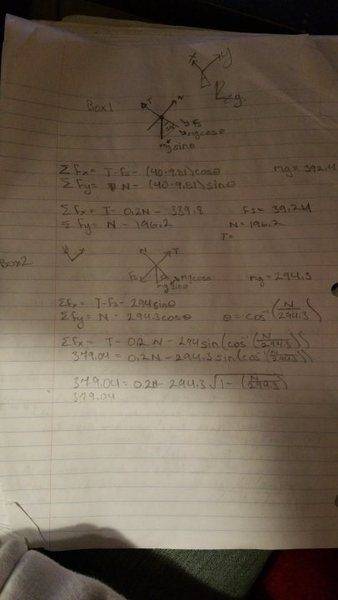 x y
Box 1
T N
Fs
mgcosθ
mgsinθ
ΣFx = T - Fs - (40·9.81)cosθ mg = 392.4
ΣFy = N - (40·9.81)sinθ
ΣFx = T - 0.2N - 339.8 Fs = 39.24
ΣFy = N - 196.2 N = 196.2
T =
Box 2
N T
Fs mgcosθ
mgsinθ mg = 294.3
ΣFx = T - Fs - 294sinθ
ΣFy = N - 294.3cosθ θ = cos⁻¹(N/294.3)
ΣFx = T - 0.2N - 294sin(cos⁻¹(N/294.3))
379.04 = 0.2N - 294.3sin(cos⁻¹(N/294.3))
379.04 = 0.2N - 294.3√(1 - (N/294.3))
379.04